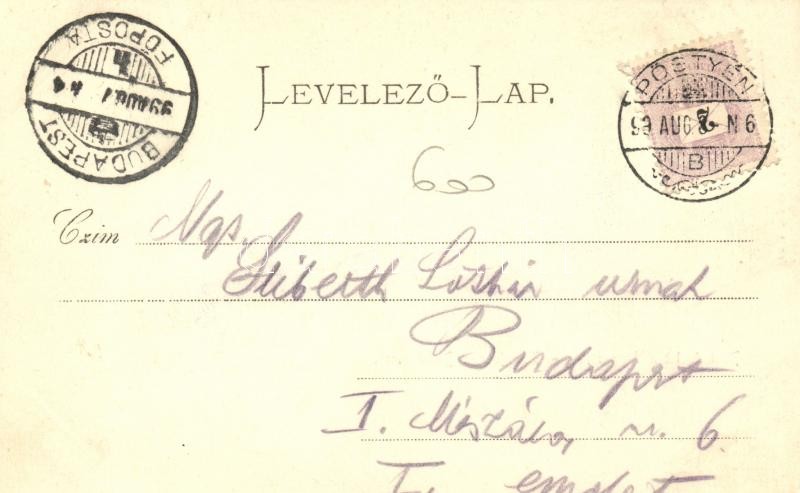 BUDAPEST
FŐPOSTA
99 AUG. 7
LEVELEZŐ-LAP.
PŐSTYÉN
99 AUG 6 N 6
B
600
Czim Ngs.
Lothár urnak
Budapest
I. Mészáros u. 6
I. emelet